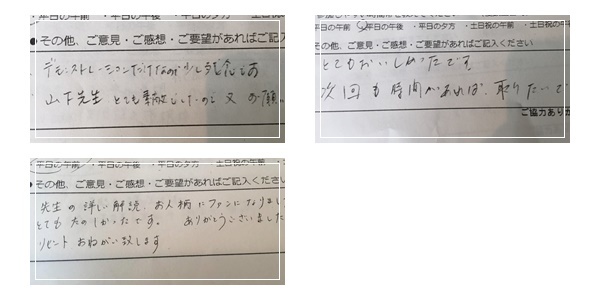 ・平日の午前 ・平日の午後 ・平日の夕方 ・土日祝の
●その他、ご意見・ご感想・ご要望があればご記
デモンストレーションだけなのが少し残念であ
山下先生 とても素敵でしたので 又 お願い
・平日の午前 ・平日の午後 ・平日の夕方 ・土日祝の午前 ・土日祝の午
●その他、ご意見・ご感想・ご要望があればご記入ください
とてもおいしかったです
次回も時間があれば、取りたいで
ご協力あり
平日の午前 ・平日の午後 ・平日の夕方 ・土日祝の午
●その他、ご意見・ご感想・ご要望があればご記入くださ
先生の詳しい解説、お人柄にファンになりまし
とてもたのしかったです。 ありがとうございました
リピート おねがい致します